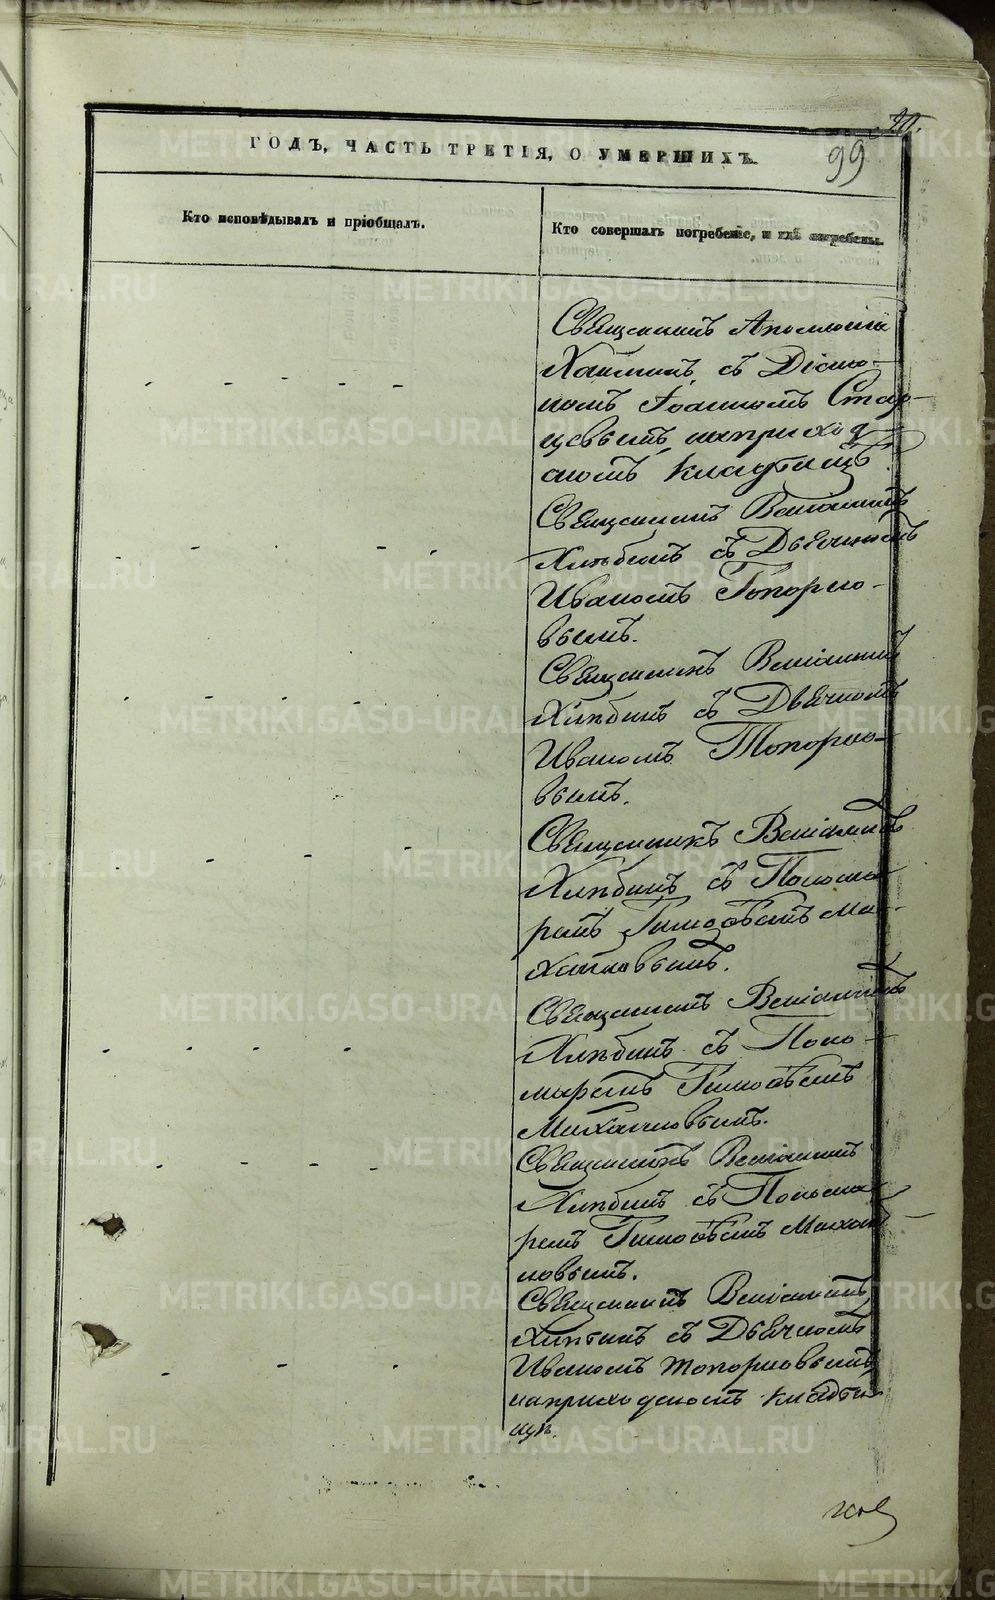 90.
ГОДЪ, ЧАСТЬ ТРЕТІЯ, О УМЕРШИХЪ.
99
Кто исповѣдывалъ и пріобщалъ.
Кто совершалъ погребеніе, и гдѣ погребены.
Священникъ
съ Діако-
номъ Іоанномъ Стар-
цевымъ, на приход
скомъ кладбищѣ.
Священникъ Веніаминъ
Хлѣбинъ съ Дьячкомъ
Иваномъ Топорко-
вымъ.
Священникъ Веніаминъ
Хлѣбинъ съ Дьячкомъ
Иваномъ Топорко-
вымъ.
Священникъ Веніаминъ
Хлѣбинъ съ Понома-
ремъ Ми-
хайловымъ.
Священникъ Веніаминъ
Хлѣбинъ съ Поно-
маремъ
Михайловымъ.
Священникъ Веніаминъ
Хлѣбинъ съ Понома
ремъ Михай
ловымъ.
Священникъ Веніаминъ
Хлѣбинъ съ Дьячкомъ
Иваномъ Топорковымъ,
на приходскомъ кладби
щѣ.
METRIKI.GASO-URAL.RU